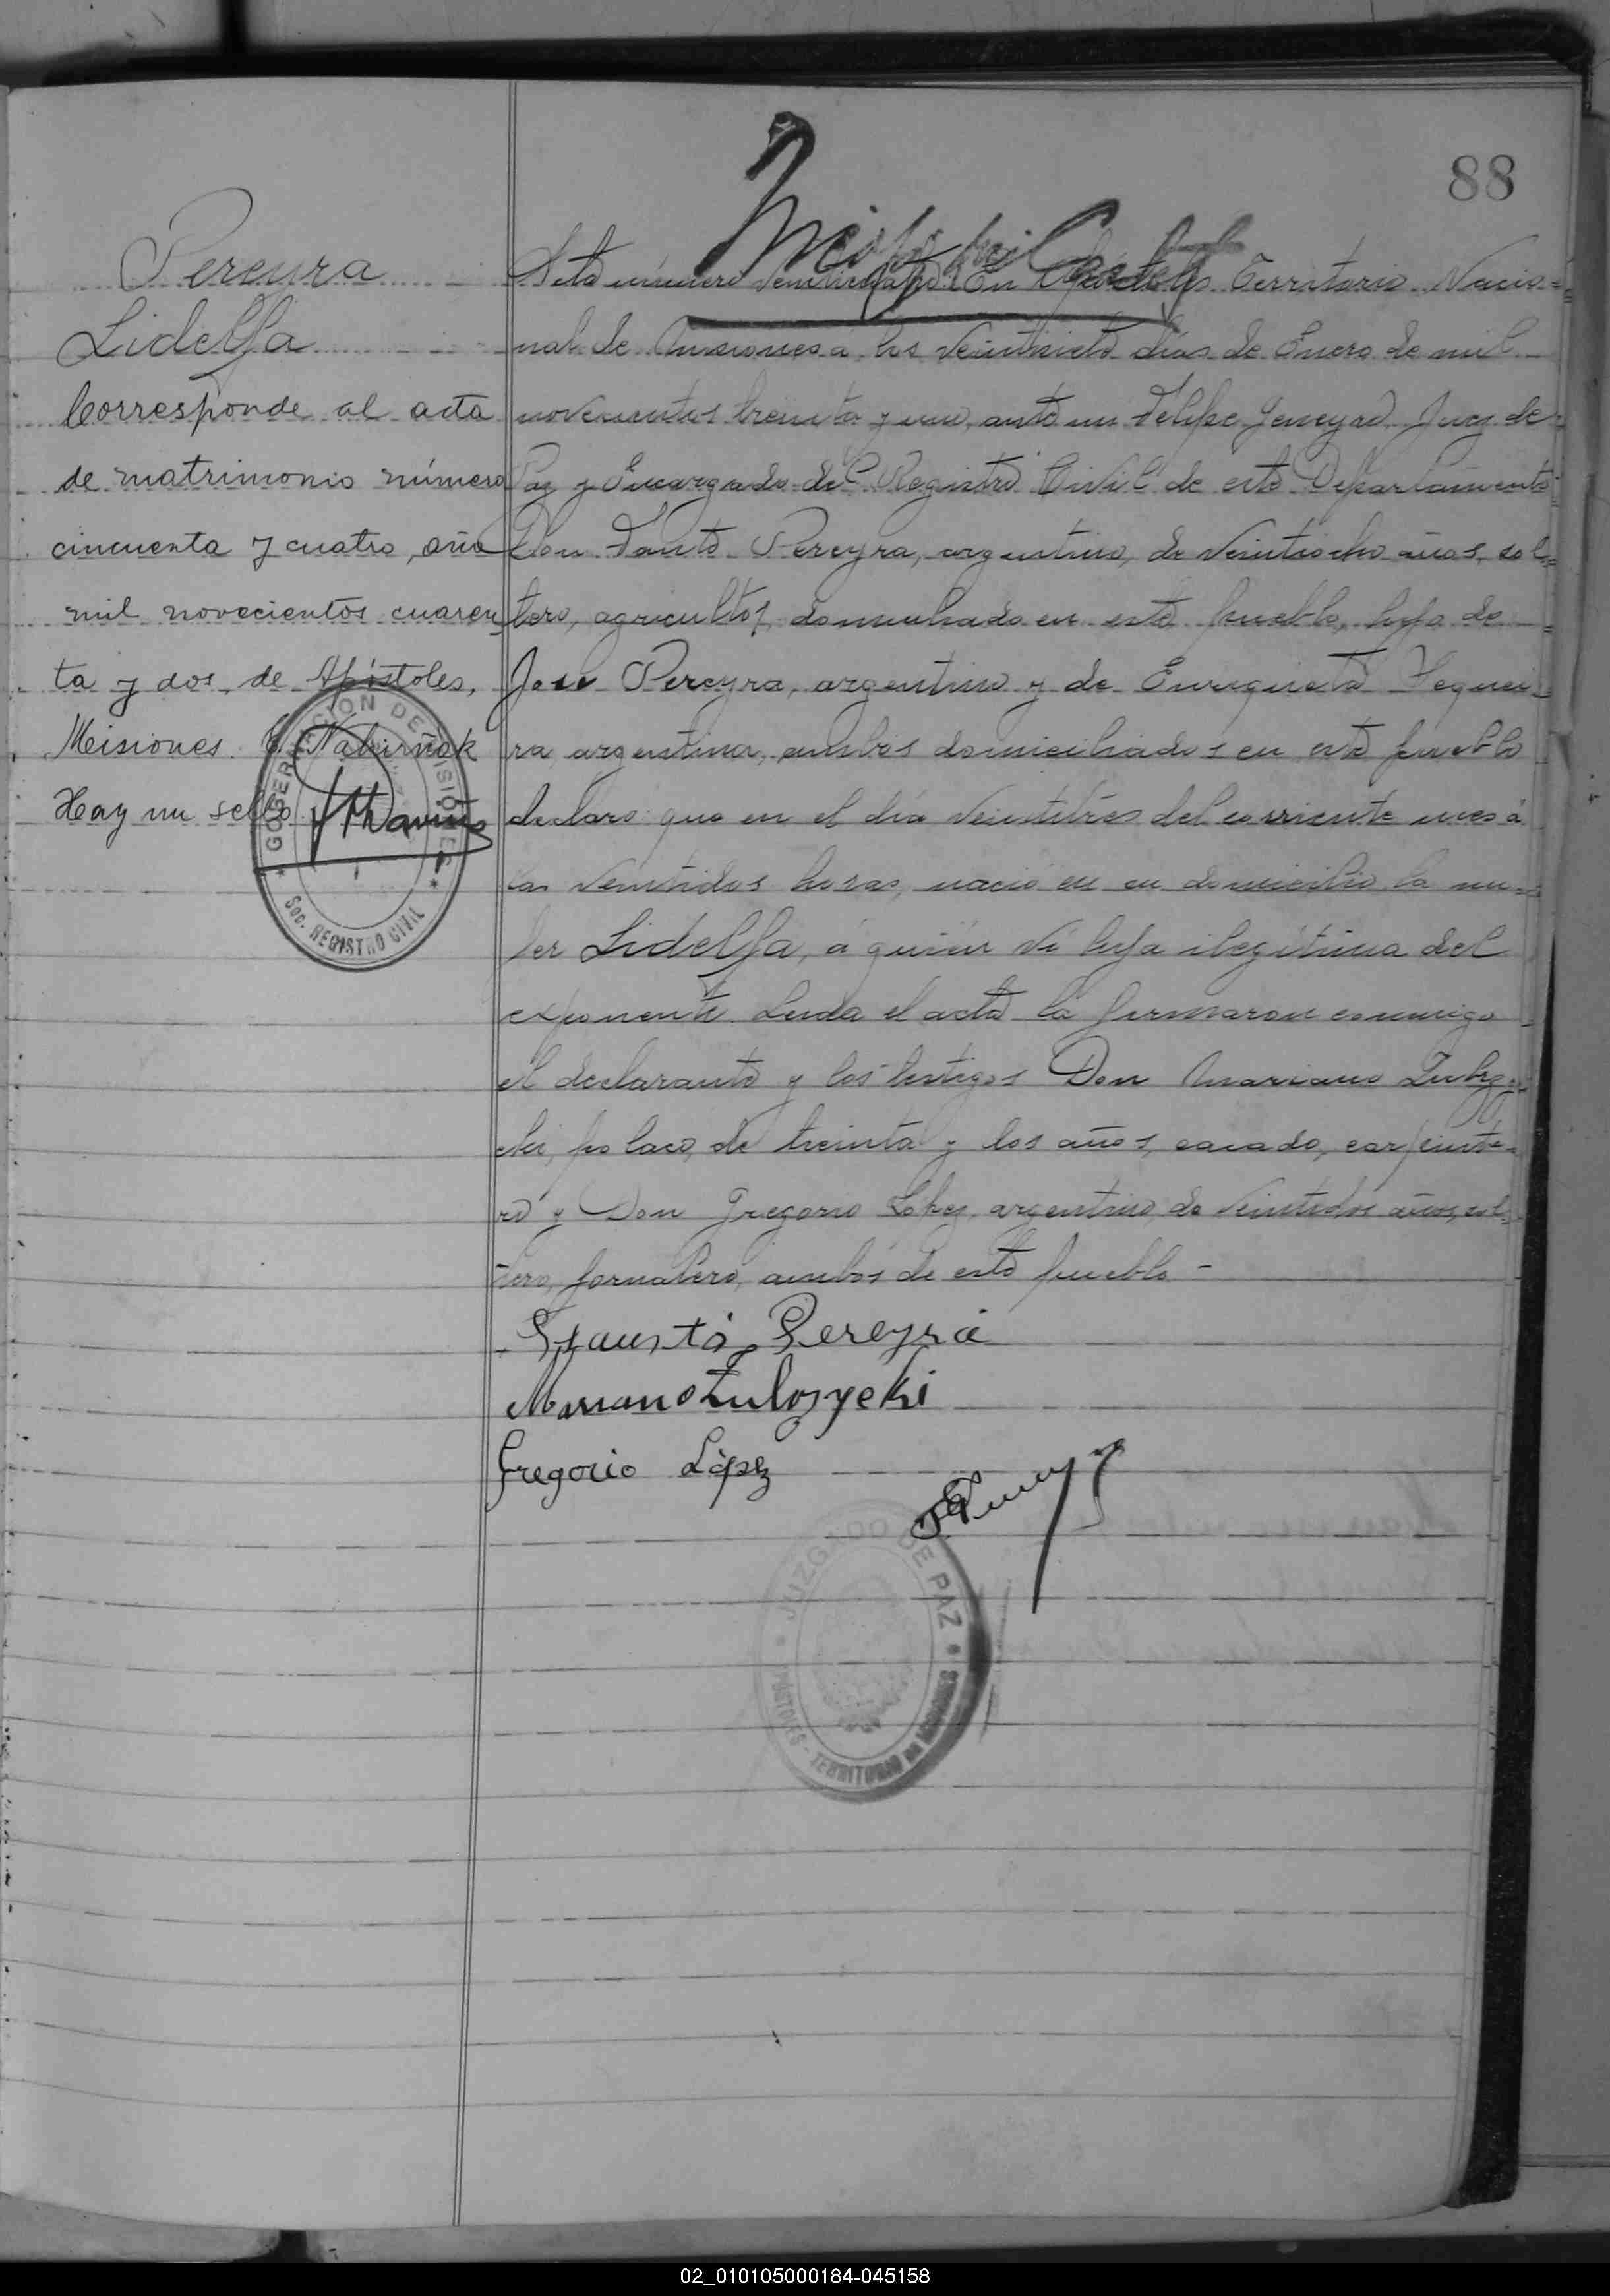 88
Pereyra
Lidelfa
Corresponde al acta
de matrimonio número
cincuenta y cuatro, año
mil novecientos cuaren
ta y dos, de Apóstoles,
Misiones.
Hay un sello
GOBERNACION DE MISIONES
Soc. REGISTRO CIVIL
Acta número veinticuatro: En Apóstoles Territorio Nacio=
nal de Misiones a los veintisieto días de Enero de mil
novecientos treinta y uno, ante mi Felipe Jeneyro Juez de
Paz y Encargado del Registro Civil de este Departamento
Don Fausto Pereyra, argentino, de veintiocho años, sol=
tero, agricultor, domiciliado en este pueblo, hijo de
José Pereyra, argentino y de Enriqueta Sequei
ra argentina, ambos domiciliados en este pueblo
declaro: que en el día veintitrés del corriente mes á
las veintidos horas, nació en su domicilio la mu=
jer Lidelfa, á quién ví hija ilegítima del
exponente. Leida el acta la firmaron conmigo
el declarante y los testigos Don Mariano
cki, polaco, de treinta y dos años, casado, carpinte=
ro y Don Gregorio López, argentino, de veintidos años, sol=
tero, jornalero, ambos de este pueblo -
Fausto Pereyra
Mariano
Gregorio López
JUZGADO DE PAZ
APOSTOLES - TERRITORIO DE MISIONES
02_010105000184-045158